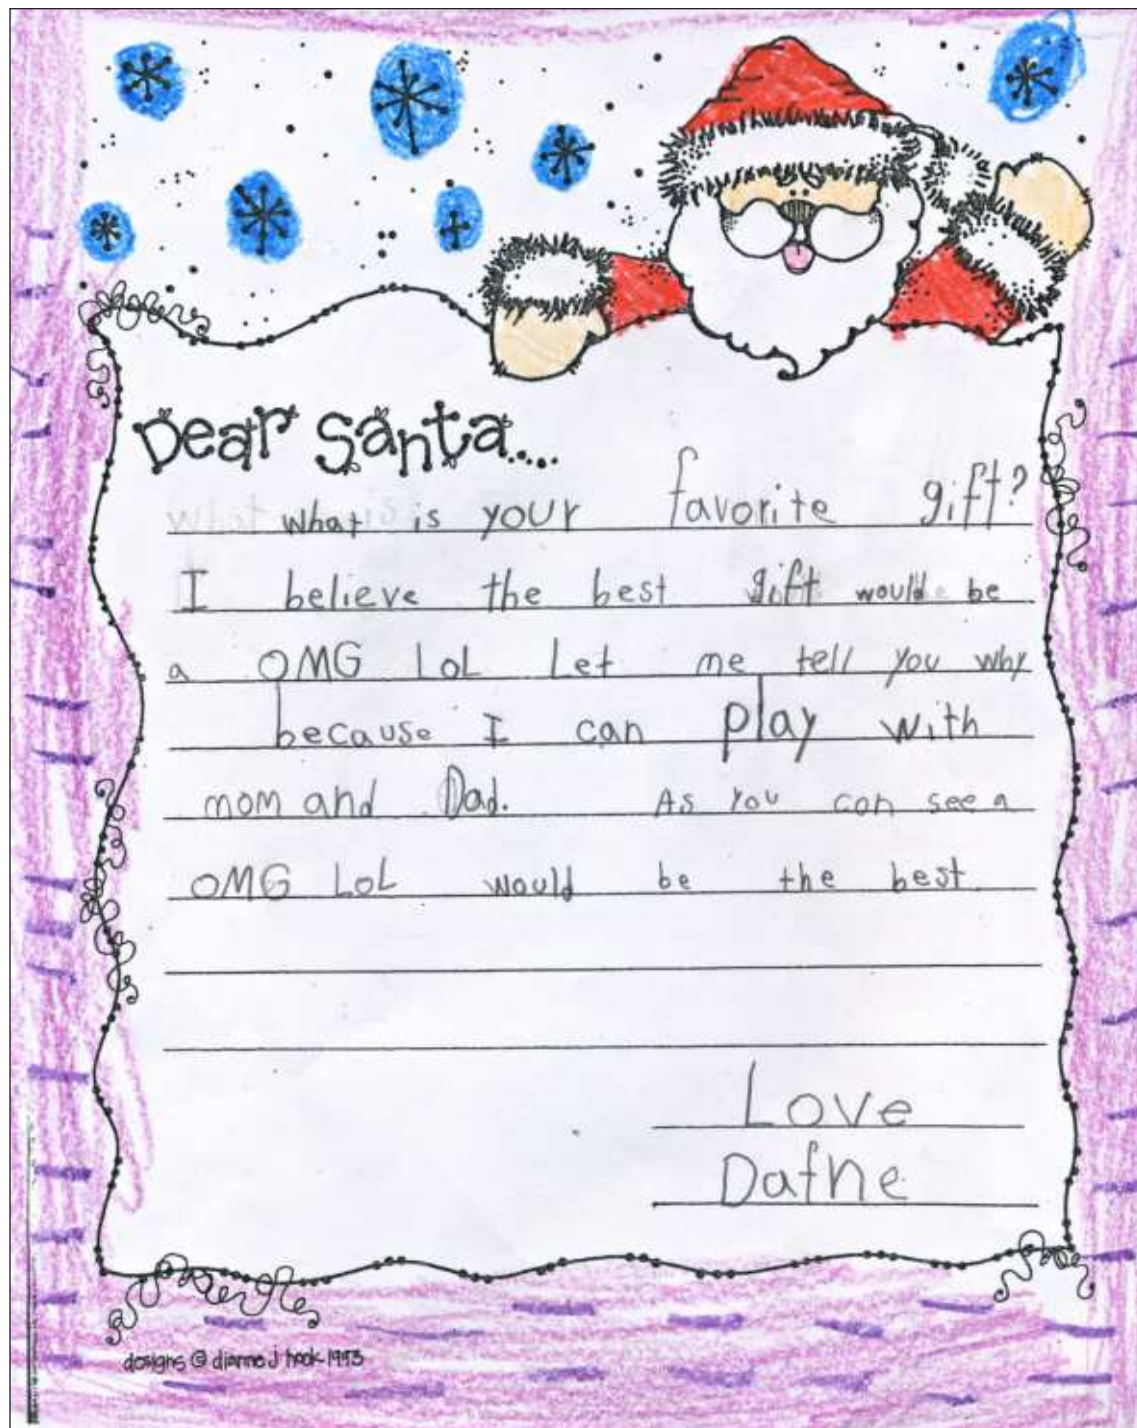 Dear Santa....
what is your favorite gift?
I believe the best gift would be
a OMG LOL Let me tell you why
because I can play with
mom and Dad. As you can see a
OMG LOL would be the best
Love
Dafne
designs © dianne j hook 1993